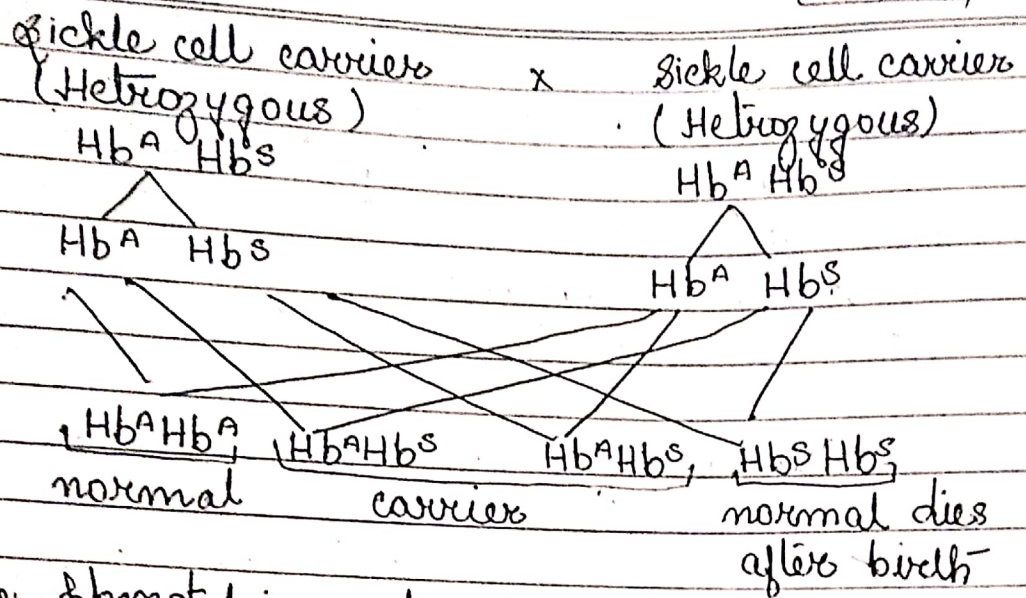 Sickle cell carrier x Sickle cell carrier
(Hetrozygous) (Hetrozygous)
HbA HbS HbA HbS
HbA HbS HbA HbS
HbAHbA HbAHbS HbAHbS HbS HbS
normal carrier normal dies
after birth